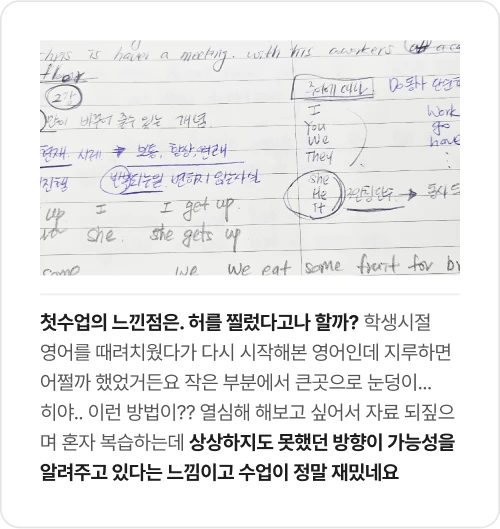 is a meeting. with his
2강
바꾸어 줄수 있는 개념
현재 시제 → 보통, 항상, 원래
반복되는일, 변하지 않는사실
up I I get up.
she. she gets up
we we eat some fruit for
주어에 따라
I
You
We
They
She
He
It
3인칭단수 →
work
go
have
첫수업의 느낀점은. 허를 찔렀다고나 할까? 학생시절
영어를 때려치웠다가 다시 시작해본 영어인데 지루하면
어쩔까 했었거든요 작은 부분에서 큰곳으로 눈덩이...
히야.. 이런 방법이?? 열심해 해보고 싶어서 자료 되짚으
며 혼자 복습하는데 상상하지도 못했던 방향이 가능성을
알려주고 있다는 느낌이고 수업이 정말 재밌네요